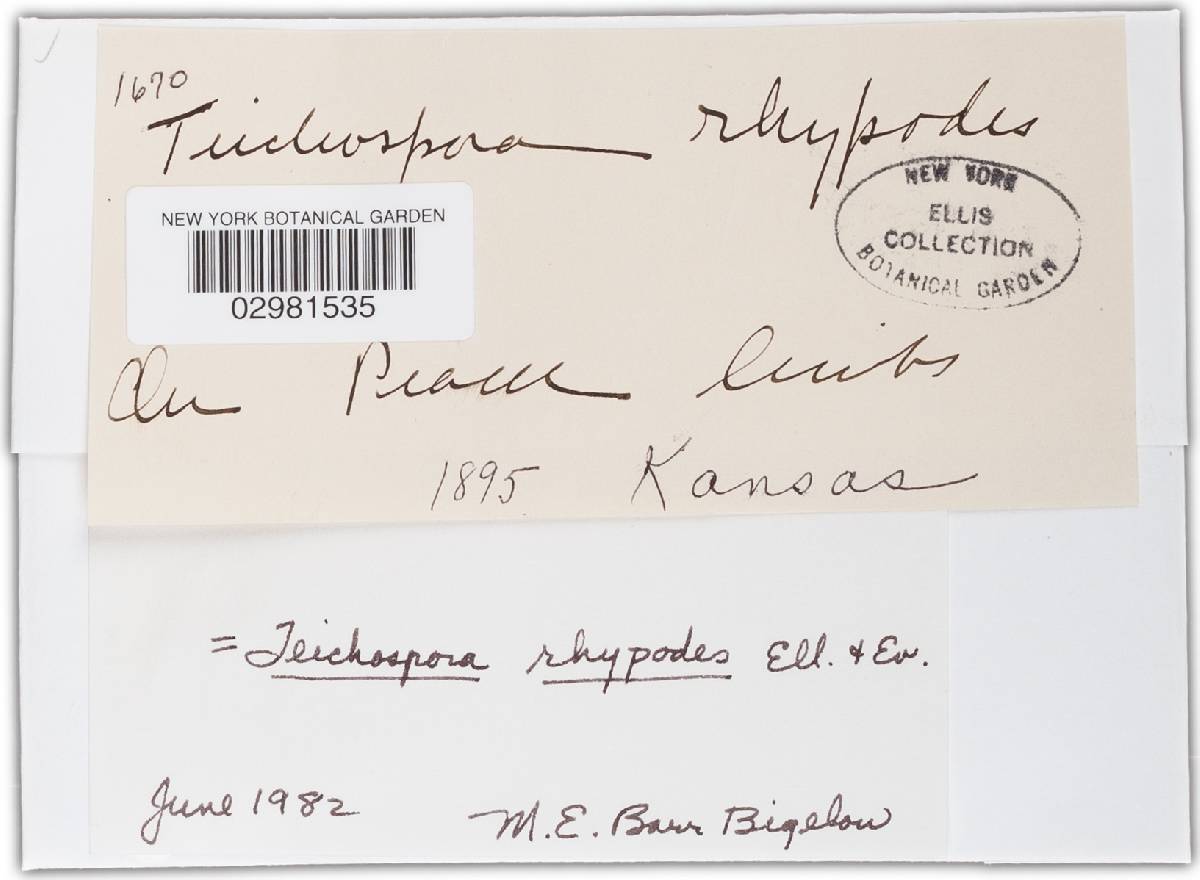 1670
Teichospora rhypodes
NEW YORK
ELLIS
COLLECTION
BOTANICAL GARDEN
NEW YORK BOTANICAL GARDEN
02981535
On Peach limbs
1895 Kansas
= Teichospora rhypodes Ell. & Ev.
June 1982 M. E. Barr Bigelow